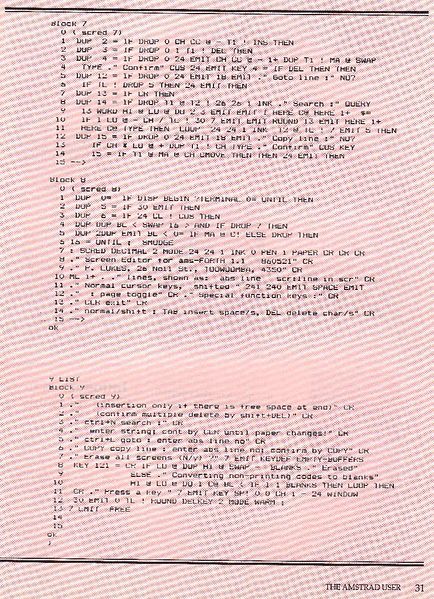 Block 7
0 ( scred 7)
1 DUP 2 = IF DROP 0 CH CO @ - T1 ! INS THEN
2 DUP 3 = IF DROP 0 1 T1 ! DEL THEN
3 DUP 4 = IF DROP 0 24 EMIT CH CO @ - 1+ DUP T1 ! MA @ SWAP
4 TYPE ." Confirm" CUS 24 EMIT KEY 4 = IF DEL THEN THEN
5 DUP 12 = IF DROP 0 24 EMIT 18 EMIT ." Goto line :" NU?
6 IF TL ! DROP 5 THEN 24 EMIT THEN
7 DUP 13 = IF CR THEN
8 DUP 14 = IF DROP T1 @ 12 ! 26 26 1 INK ." Search :" QUERY
9 13 WORD HI @ LO @ DO 2 3 EMIT EMIT I HERE C@ HERE 1+ $=
10 IF I LO @ - CH / TL ! 30 7 EMIT EMIT ROUND 13 EMIT HERE 1+
11 HERE C@ TYPE THEN LOOP 24 24 1 INK T2 @ TL ! 7 EMIT 5 THEN
12 DUP 15 = IF DROP 0 24 EMIT 18 EMIT ." Copy line :" NU?
13 IF CH * LO @ + DUP T1 ! CH TYPE ." Confirm" CUS KEY
14 15 = IF T1 @ MA @ CH CMOVE THEN THEN 24 EMIT THEN
15 -->
Block 8
0 ( scred 8)
1 DUP 0= IF DISP BEGIN ?TERMINAL 0= UNTIL THEN
2 DUP 5 = IF 30 EMIT THEN
3 DUP 6 = IF 24 CL ! CUS THEN
4 DUP DUP BL < SWAP 16 > AND IF DROP 7 THEN
5 DUP 2DUP EMIT BL < 0= IF MA @ C! ELSE DROP THEN
6 16 = UNTIL ; SMUDGE
7 : SCRED DECIMAL 2 MODE 24 24 1 INK 0 PEN 1 PAPER CR CR CR
8 ." Screen Editor for ams-FORTH 1.1 860521" CR
9 ." P. LUKES, 26 Noil St., TOOWOOMBA, 4350" CR
10 ML 1+ . ." lines, shown as: abs line . scr:line in scr" CR
11 ." Normal cursor keys, shifted " 241 240 EMIT SPACE EMIT
12 ." : page toggle" CR ." Special function keys :" CR
13 ." CLR exit" CR
14 ." normal/shift : TAB insert space/s, DEL delete char/s" CR
15 -->
ok
9 LIST
Block 9
0 ( scred 9)
1 ." (insertion only if there is free space at end)" CR
2 ." (confirm multiple delete by shift+DEL)" CR
3 ." ctrl+N search :" CR
4 ." enter string; cont by CLR until paper changes!" CR
5 ." ctrl+L goto : enter abs line no" CR
6 ." COPY copy line : enter abs line no; confirm by COPY" CR
7 ." Erase all screens (N/y) ?" 7 EMIT KEYDEF EMPTY-BUFFERS
8 KEY 121 = CR IF LO @ DUP HI @ SWAP - BLANKS ." Erased"
9 ELSE ." Converting non-printing codes to blanks"
10 HI @ LO @ DO I C@ BL < IF I 1 BLANKS THEN LOOP THEN
11 CR ." Press a key " 7 EMIT KEY SP! 0 0 CH 1 - 24 WINDOW
12 30 EMIT 0 TL ! ROUND DELKEY 2 MODE WARM ;
13 7 EMIT FREE
14
15
ok
;
THE AMSTRAD USER 31